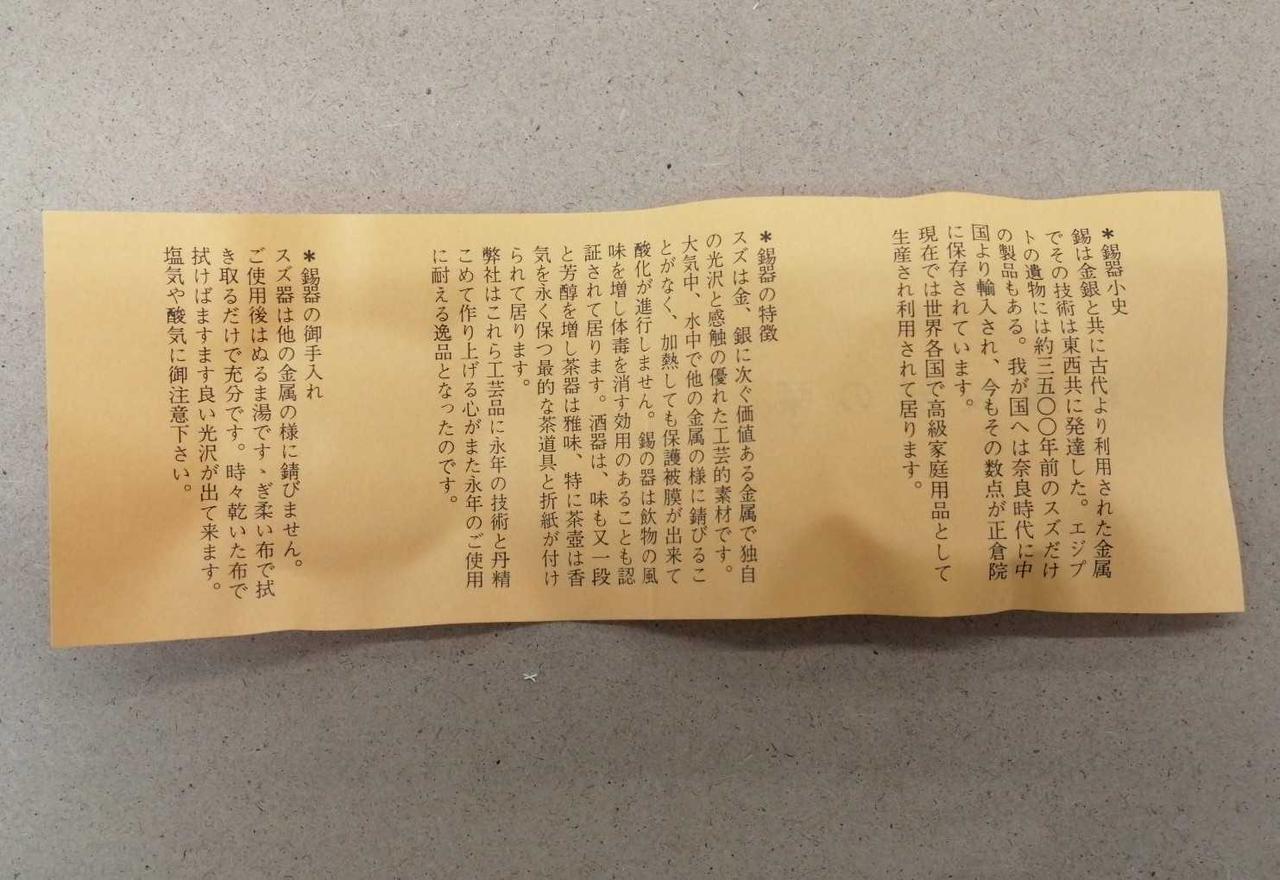 ＊錫器小史
錫は金銀と共に古代より利用された金属
でその技術は東西共に発達した。エジプ
トの遺物には約三五〇〇年前のスズだけ
の製品もある。我が国へは奈良時代に中
国より輸入され、今もその数点が正倉院
に保存されています。
現在では世界各国で高級家庭用品として
生産され利用されて居ります。
＊錫器の特徴
スズは金、銀に次ぐ価値ある金属で独自
の光沢と感触の優れた工芸的素材です。
大気中、水中で他の金属の様に錆びるこ
とがなく、加熱しても保護被膜が出来て
酸化が進行しません。錫の器は飲物の風
味を増し体毒を消す効用のあることも認
証されて居ります。酒器は、味も又一段
と芳醇を増し茶器は雅味、特に茶壺は香
気を永く保つ最的な茶道具と折紙が付け
られて居ります。
弊社はこれら工芸品に永年の技術と丹精
こめて作り上げる心がまた永年のご使用
に耐える逸品となったのです。
＊錫器の御手入れ
スズ器は他の金属の様に錆びません。
ご使用後はぬるま湯ですゝぎ柔い布で拭
き取るだけで充分です。時々乾いた布で
拭けばますます良い光沢が出て来ます。
塩気や酸気に御注意下さい。